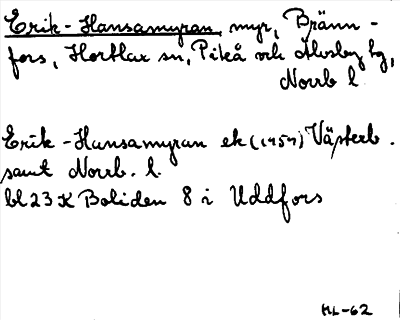 Erik-Hansamyran, myr, Bränn-
fors, Hortlax sn, Piteå och Älvsby hg,
Norrb l.
Erik-Hansamyran ek (1959) Västerb.
samt Norrb. l.
bl 23 K Boliden 8 i Uddfors
HL-62